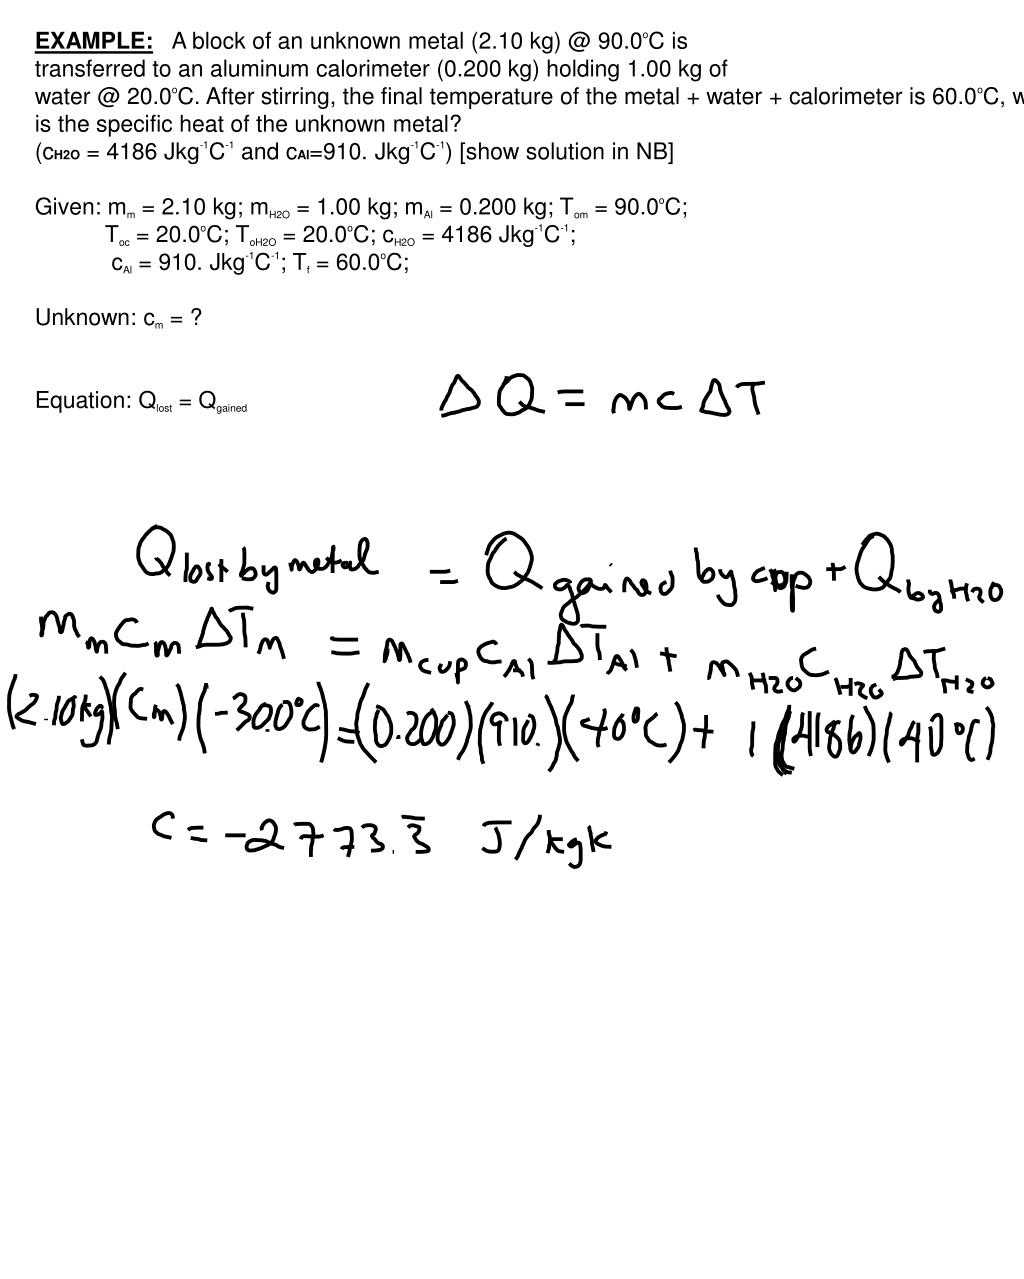 EXAMPLE: A block of an unknown metal (2.10 kg) @ 90.0°C is
transferred to an aluminum calorimeter (0.200 kg) holding 1.00 kg of
water @ 20.0°C. After stirring, the final temperature of the metal + water + calorimeter is 60.0°C, w
is the specific heat of the unknown metal?
(cH2O = 4186 Jkg⁻¹C⁻¹ and cAl=910. Jkg⁻¹C⁻¹) [show solution in NB]
Given: mₘ = 2.10 kg; mH2O = 1.00 kg; mAl = 0.200 kg; Tom = 90.0°C;
Toc = 20.0°C; ToH2O = 20.0°C; cH2O = 4186 Jkg⁻¹C⁻¹;
cAl = 910. Jkg⁻¹C⁻¹; Tf = 60.0°C;
Unknown: cm = ?
Equation: Qlost = Qgained ΔQ = mcΔT
Q lost by metal = Q gained by cup + Q by H2O
mm Cm ΔTm = mcup CAl ΔTAl + mH2O CH2O ΔTH2O
(2.10kg)(Cm)(-30.0°C)=(0.200)(910.)(40°C)+ 1(4186)(40°C)
C = -2773.3̅ J/kgK